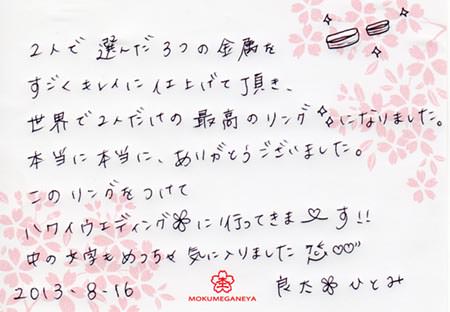 2人で選んだ3つの金属を
すごくキレイに仕上げて頂き、
世界で2人だけの最高のリングになりました。
本当に本当に、ありがとうございました。
このリングをつけて
ハワイウエディングに行ってきま♡す!!
中の文字もめっちゃ気に入りました♡♡"
2013.8.16 良太 ひとみ
MOKUMEGANEYA